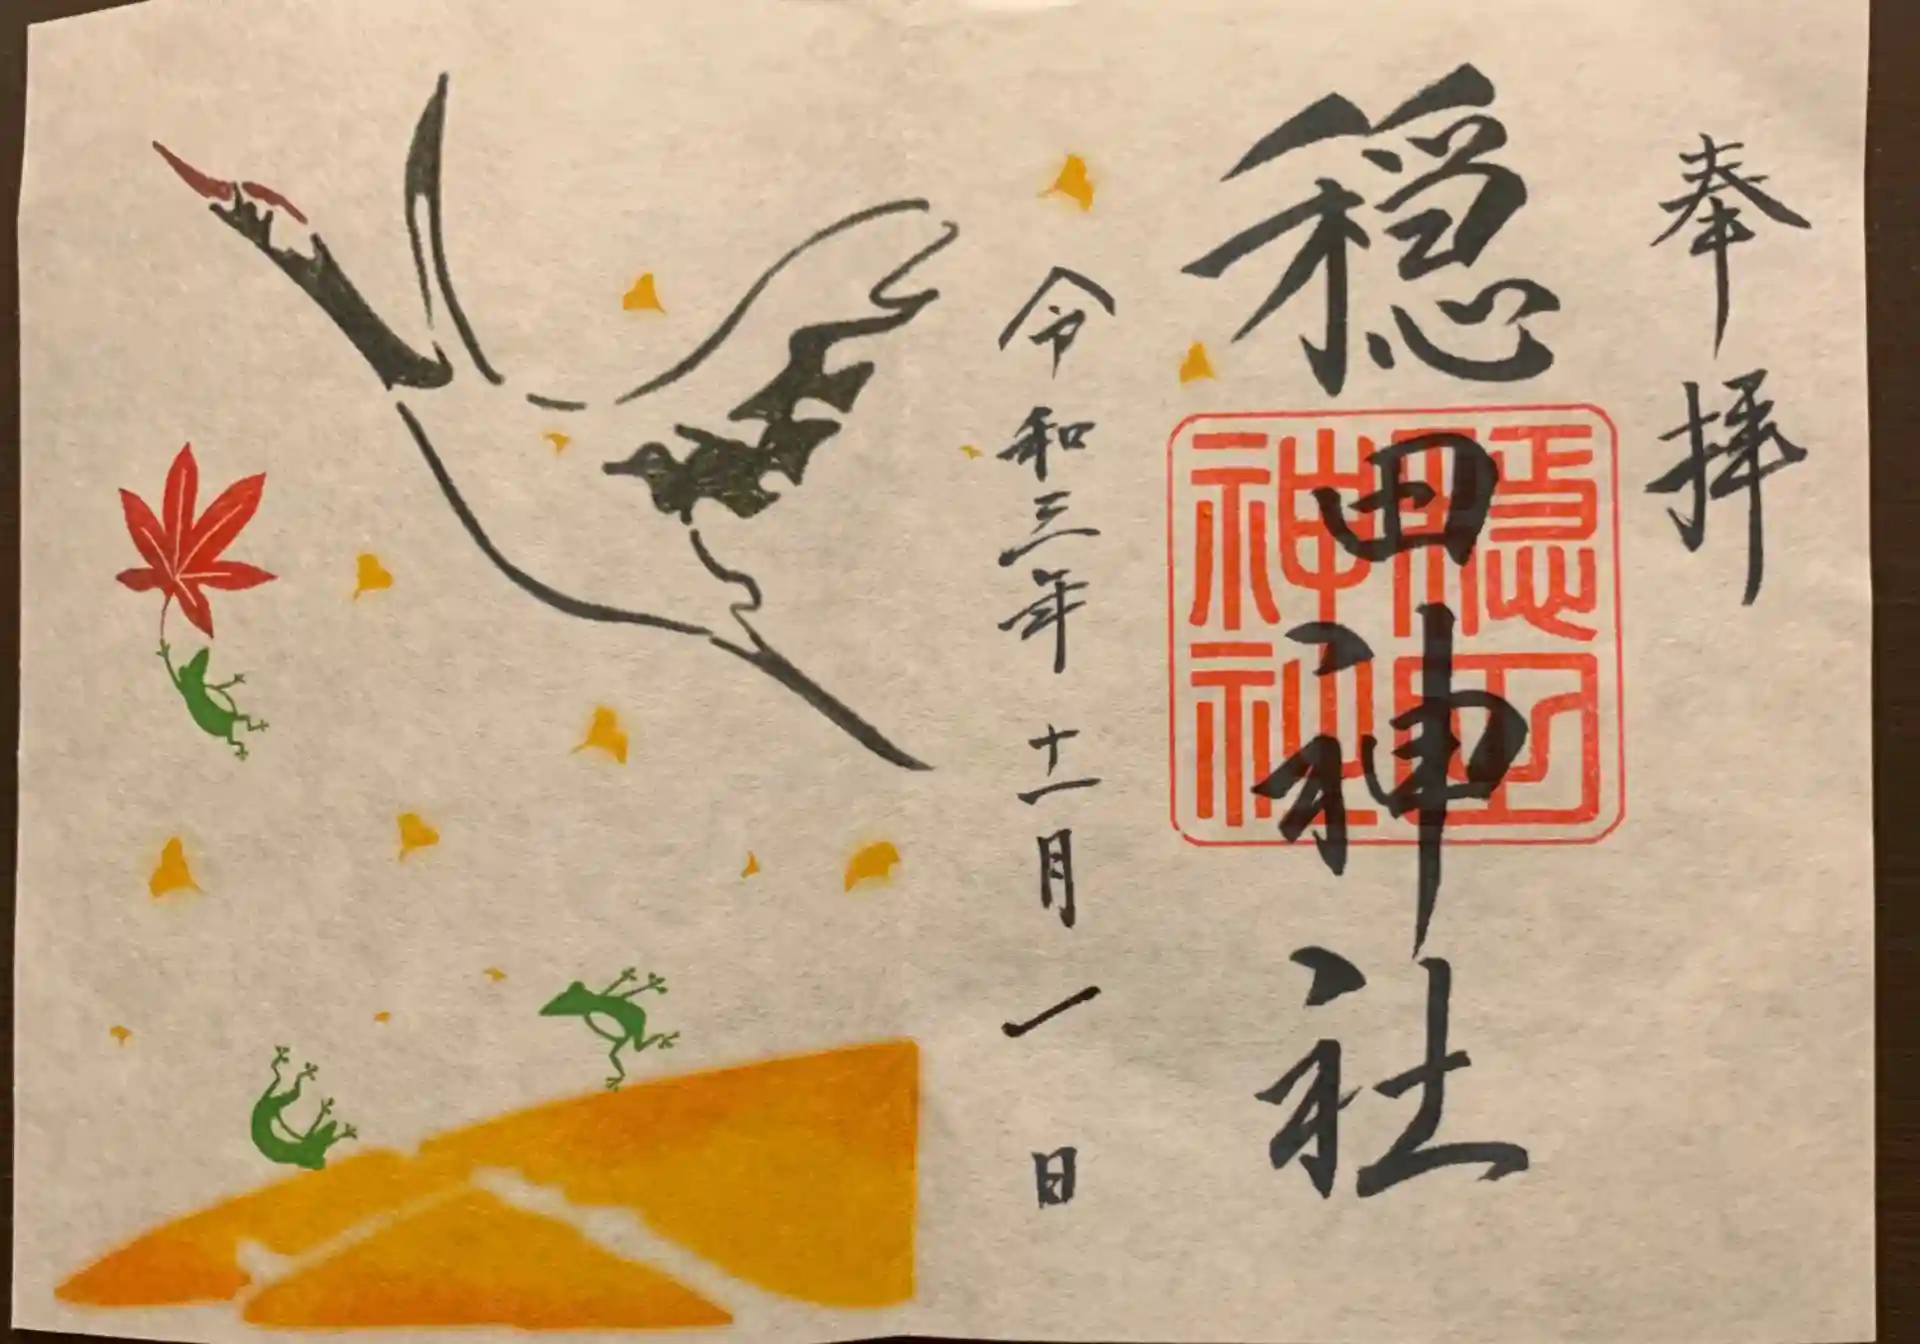 奉拝
穏田神社
穏田神社
令和三年十一月一日